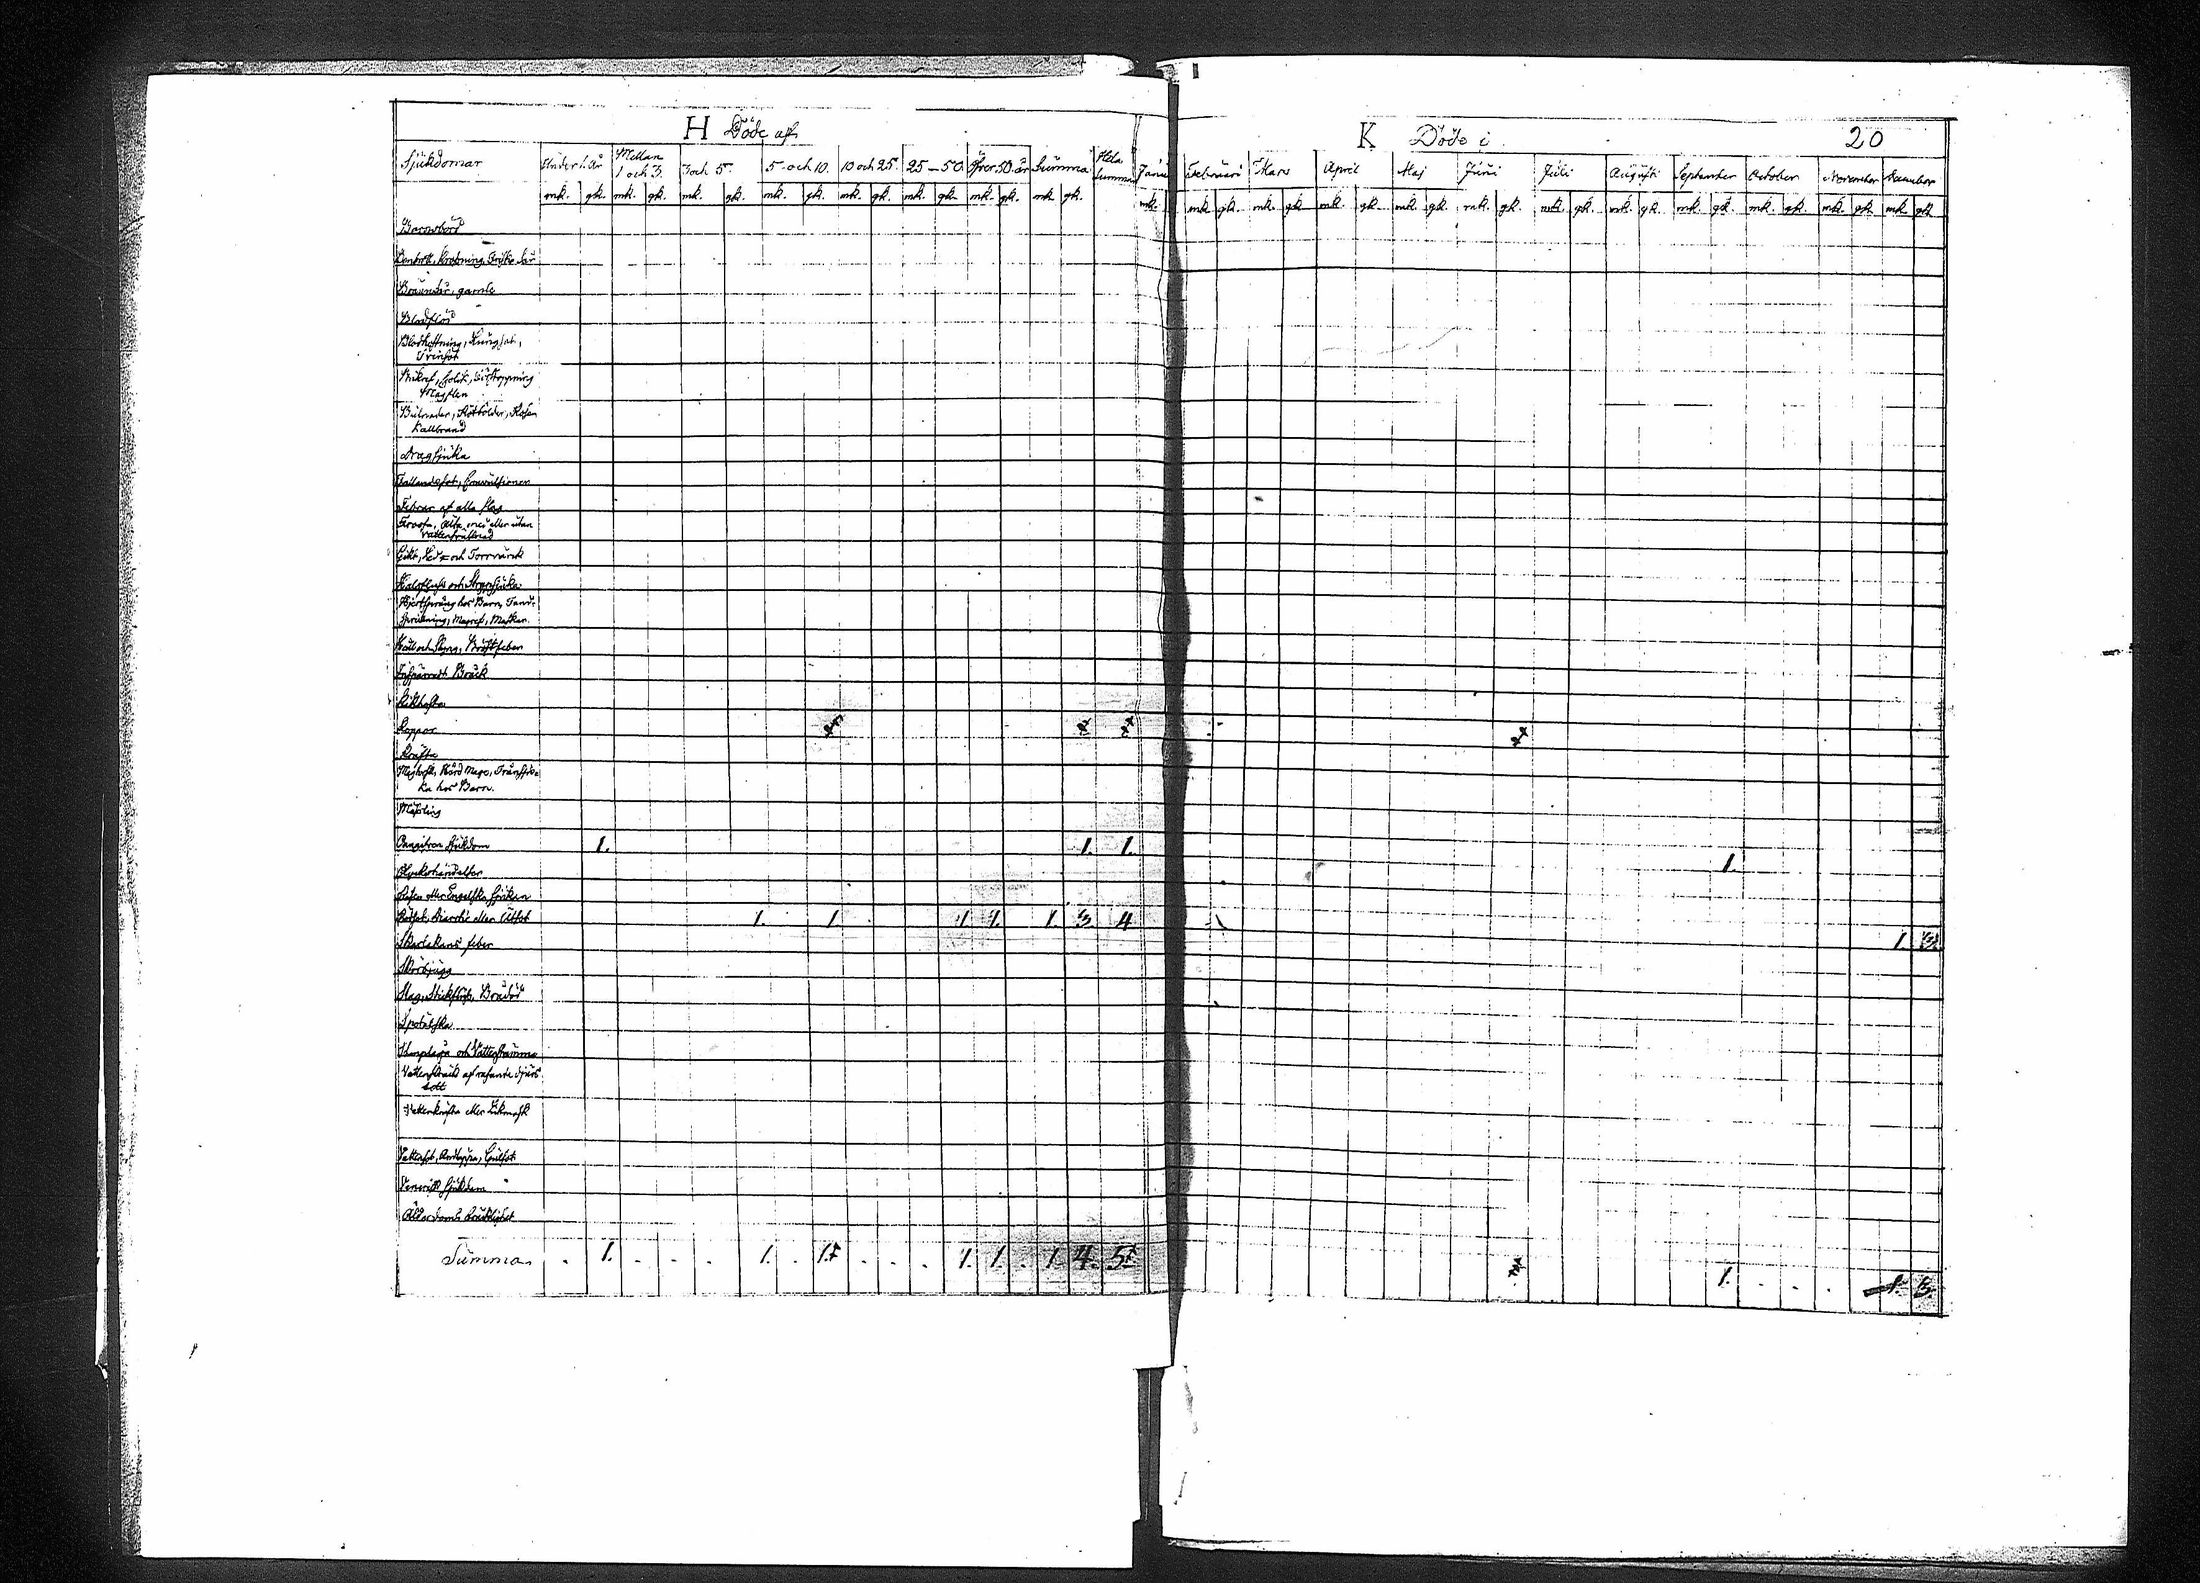 H Döde af
K Döde i
20
Sjukdomar Under 1. år Mellan 1 och 3. 3 och 5. 5. och 10. 10 och 25. 25 – 50. Öfver 50. år Summa Hela Summa
Janu Februari Mars April Maj Juni Juli Augusti September October November December
mk. gk. mk. gk. mk. gk. mk. gk. mk. gk. mk. gk. mk. gk. mk. gk.
mk. mk. gk. mk. gk. mk. gk. mk. gk. mk. gk. mk. gk. mk. gk. mk. gk. mk. gk. mk. gk. mk. gk.
Barnsbörd
Benbrott, Krossning, Friska Sår
Bråunder, gamle
Blodflod
Blodhostning, Lungsot,
Trånsot
Bukref, Colik, Förstoppning
Magplen
Bulnader, Rötbölder, Rosen
Kallbrand
Dragsjuka
Fallandesot, Convulsioner
Febrar af alla slag
Frossa, Älta med eller utan
Vattenfullhed
Gikt, Led= och Torrvärk
Halsfluss och Strypsjuka
Hjertsprång hos Barn, Tand=
sprickning, Magref, Maskar.
Håll och Styng, Bröstfeber
Inspärradt Bråck
Kikhosta
Koppor
Kräfta
Maglossk, Hård Mage, Trånsju=
ka hos Barn.
Mässling
Oangifven Sjukdom 1. 1. 1. 1.
Olyckshändelser
Risen eller Engelska sjukan
Rödsot, Diarrhé eller Utsot 1. 1. 1. 1. 1. 3. 4
Skarlakans feber 1. 3.
Skörbjugg
Slag, Stickfluss, Bråddöd
Spetälska
Vattuskräck af rasande djurs
bett
Vattenkräfta eller Likmask
Vattusot, Andtäppa, Gulsot
Venerisk sjukdom
Ålderdoms bräcklighet
Summa . 1. . . . 1. . 1. . . . 1. 1. . 1. 4. 5 1. . . . 1. 3.